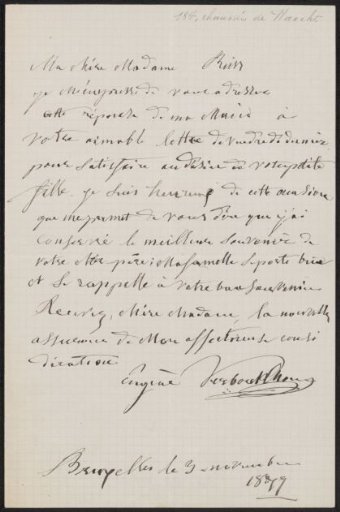 186, chaussée de Haecht
Ma chère Madame
je m'empresse de vous adresser
cette réponse de ma Main à
votre aimable lettre de vendredi dernier
pour satisfaire au désir de votre petite
fille. je suis heureux de cette occasion
que me permet de vous dire que j'ai
conservé le meilleur souvenir de
votre Ma famille se porte bien
et se rappelle à votre bon souvenir
Recevez, chère Madame, la nouvelle
assurance de Mon affectueuse consi
dération
Eugène Verboeckhoven
Bruxelles le 3 novembre
1879